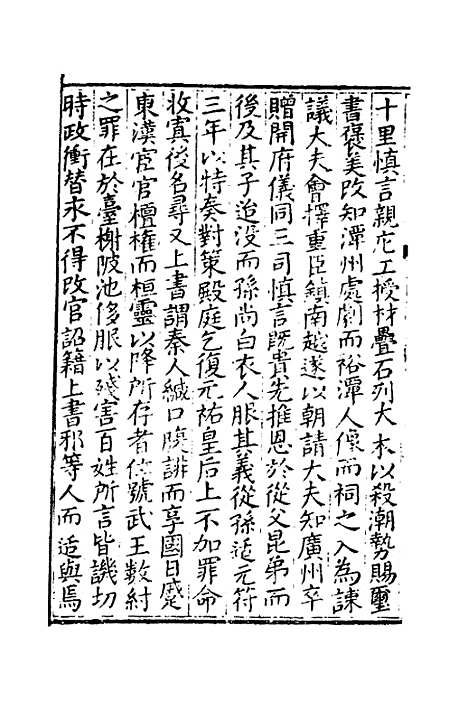 十里慎言親庀工授材疊石列大木以殺潮勢賜璽
書褒美改知潭州處劇而裕潭人像而祠之入為諫
議大夫會擇重臣鎮南越遂以朝請大夫知廣州卒
贈開府儀同三司慎言既貴先推恩於從父昆弟而
後及其子迨没而孫尚白衣人服其義從孫适元符
三年以特奏對策殿庭乞復元祐皇后上不加罪命
收寘後名尋又上書謂秦人緘口腹誹而享國日蹙
東漢宦官檀權而桓靈以降所存者位號武王數紂
之罪在於臺榭陂池侈服以殘害百姓所言皆譏切
時政衝替来不得改官詔籍上書邪等人而适與焉